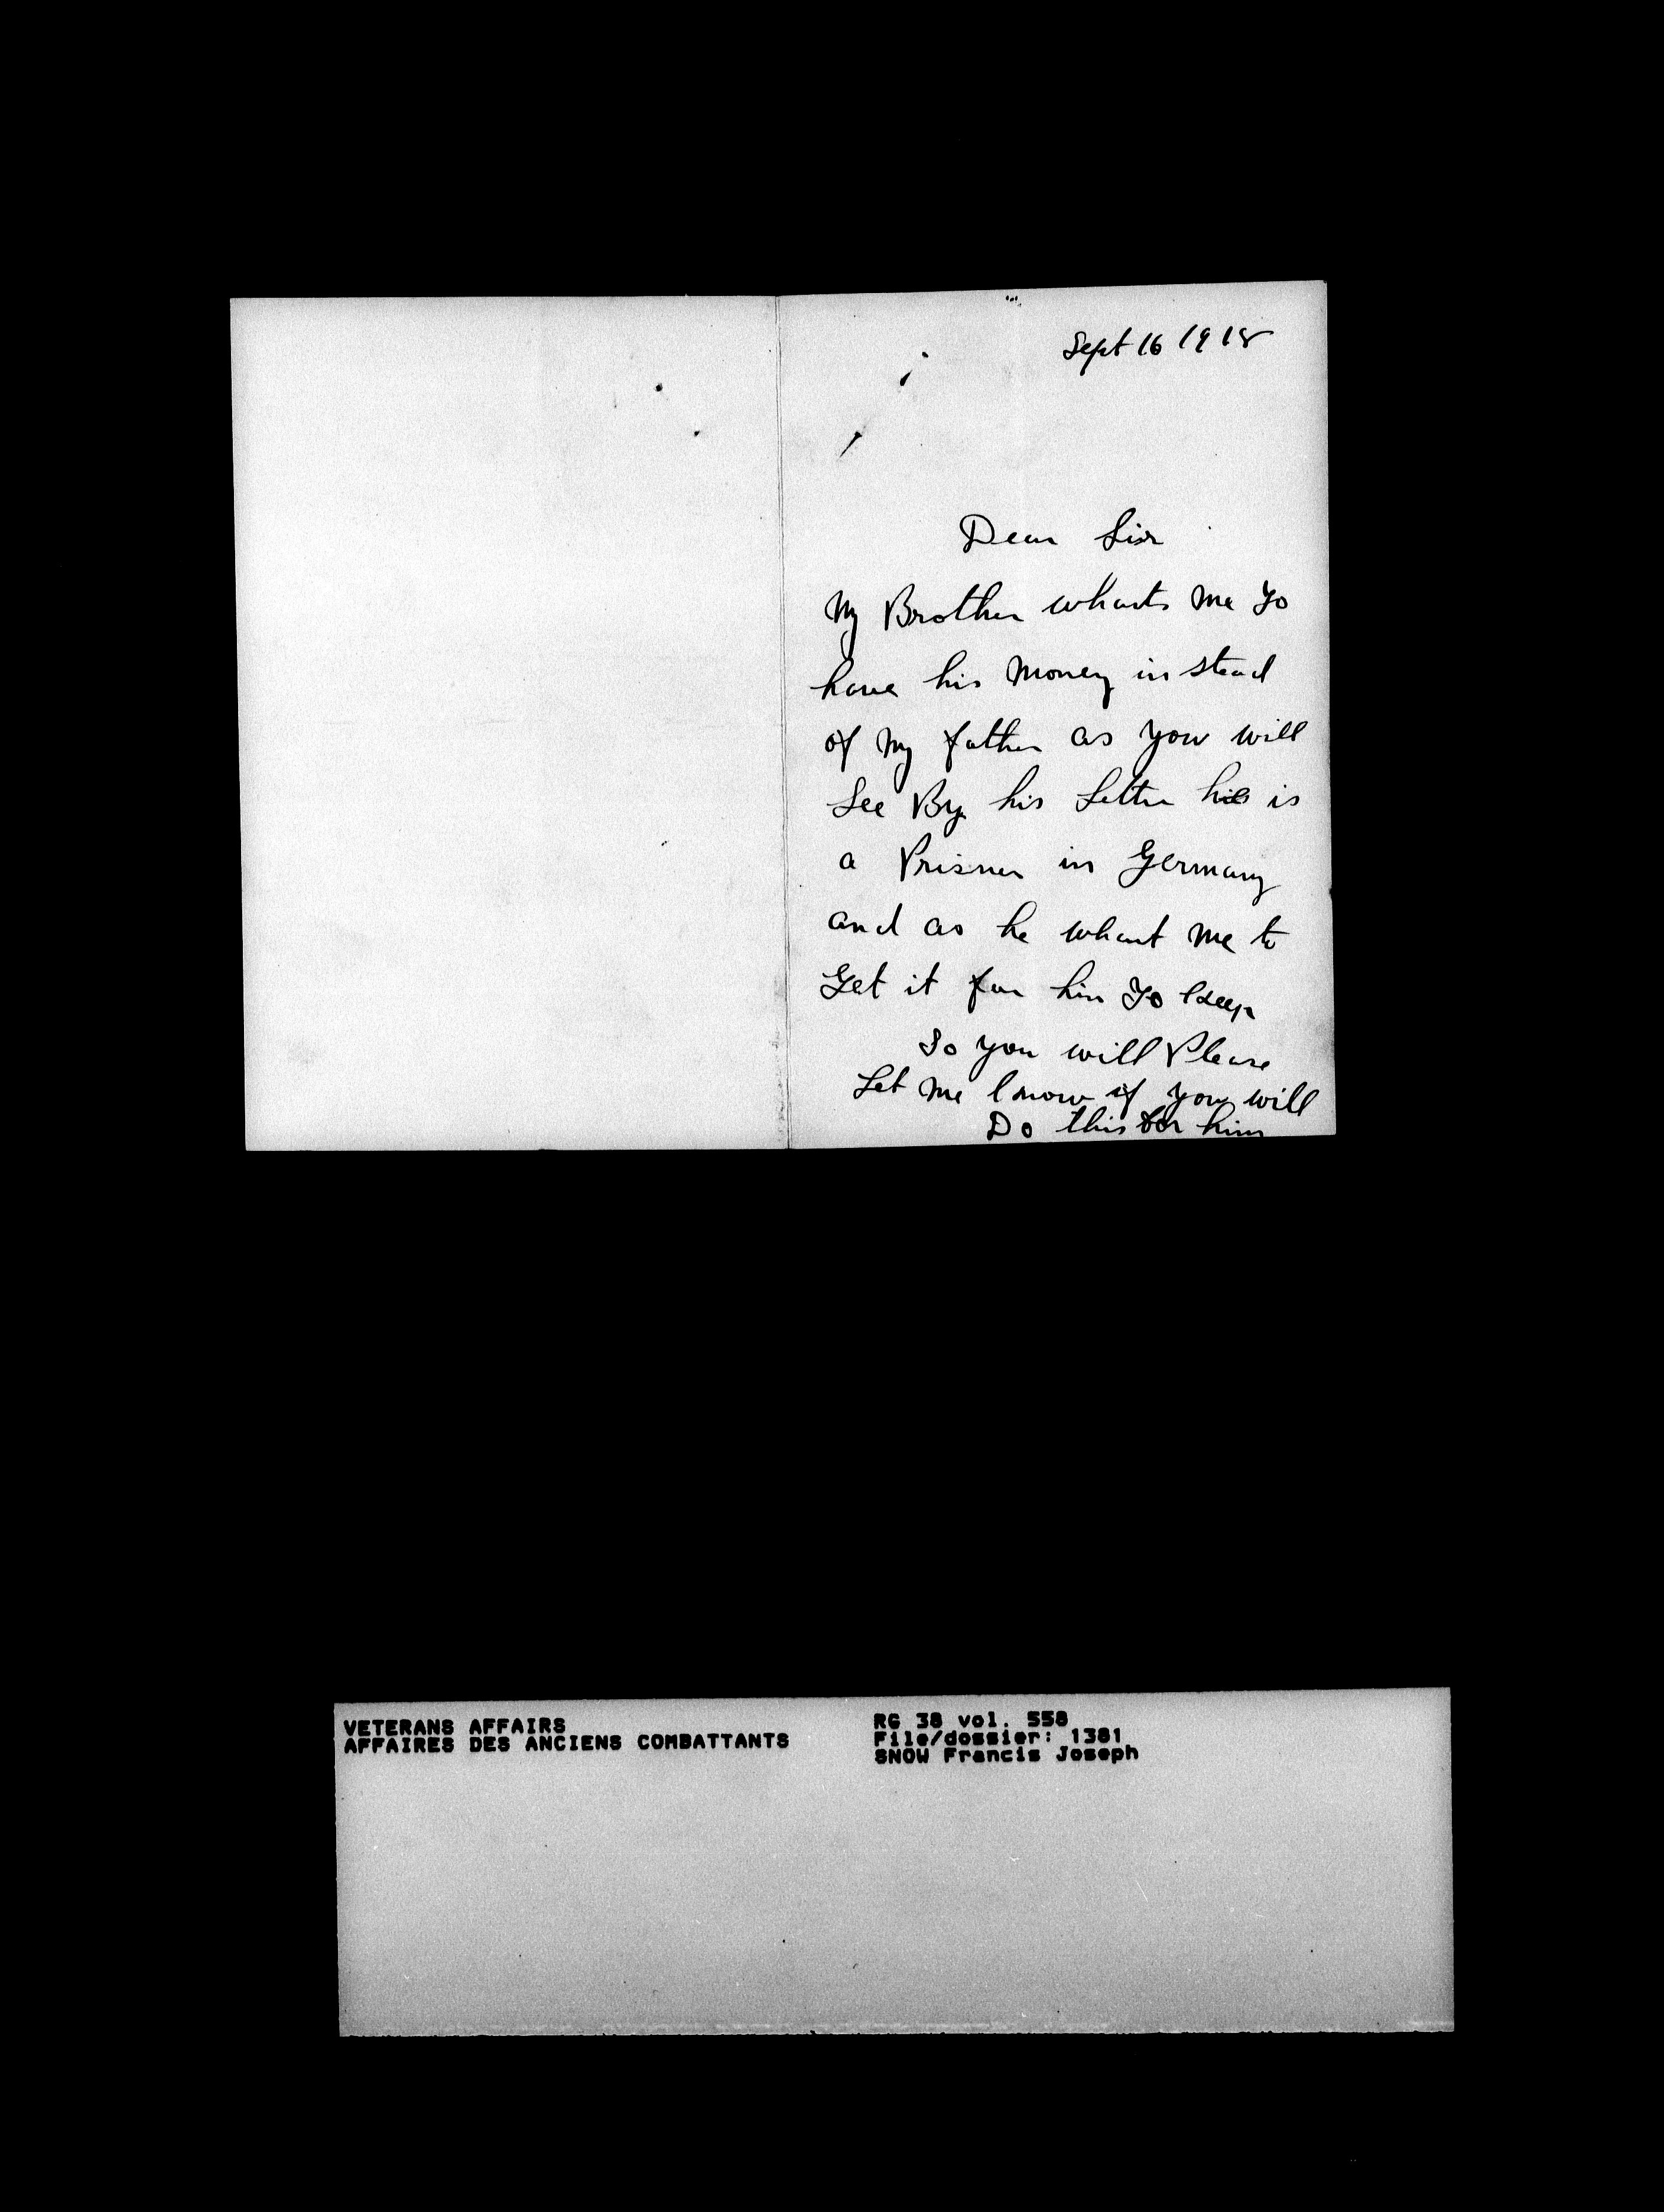 Sept 16 1918
Dear Sir
My Brother whants me to
have his Money in stead
of My father as you will
See By his Letter his is
a Prisner in Germany
and as he whant me to
Get it for him to keep
So you will Please
Let me know if you will
Do this for him
VETERANS AFFAIRS
AFFAIRES DES ANCIENS COMBATTANTS
RG 38 vol. 558
File/dossier: 1381
SNOW Francis Joseph